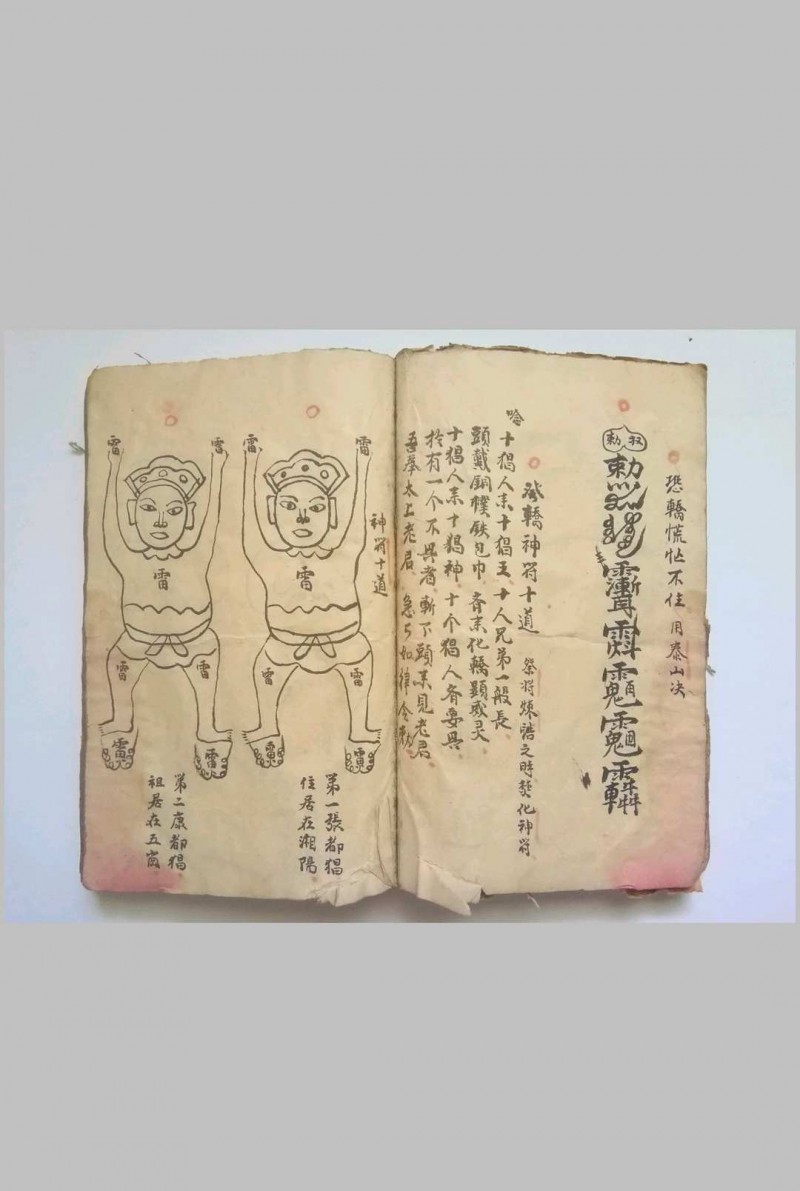 恐轎慌忙不住 用泰山决
勅
勅
轎神符十道 祭将煉誥之時焚化神符
十猖人来十猖王 十人兄弟一般長
頭戴銅樸鉄包巾 齐来化轎顕威灵
十猖人来十猖神 十个猖人齐要具
於有一个不具者 斬下頭来見老君
吾奉太上老君 急如律令勅
神符十道
雷 雷
雷
雷
雷
第一張都猖
住居在湘陽
雷 雷
雷
雷 雷
雷
第二康都猖
祖居在五